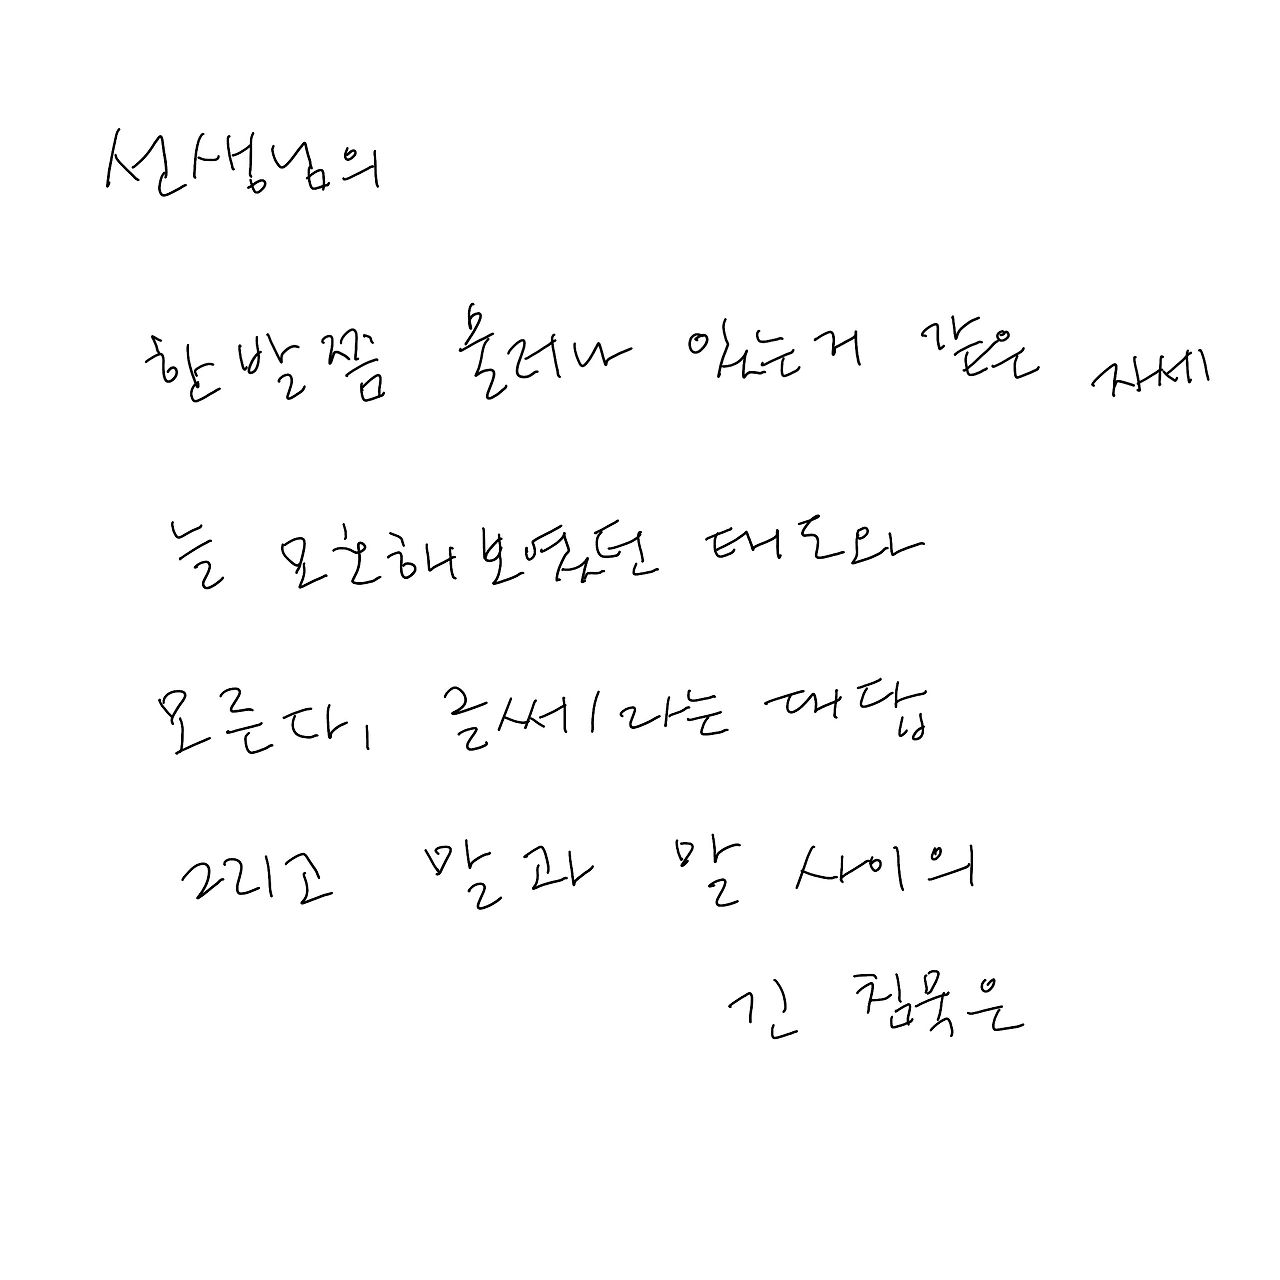 선생님의
한발쯤 물러나 있는거 같은 자세
늘 모호해보였던 태도와
모른다, 글쎄라는 대답
그리고 말과 말 사이의
긴 침묵은